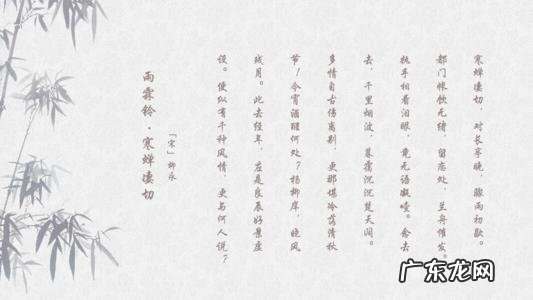 寒蝉凄切，对长亭晚，骤雨初歇。
都门帐饮无绪，留恋处，兰舟催发。
执手相看泪眼，竟无语凝噎。念去
去，千里烟波，暮霭沉沉楚天阔。
多情自古伤离别，更那堪冷落清秋
节！今宵酒醒何处？杨柳岸，晓风
残月。此去经年，应是良辰好景虚
设。便纵有千种风情，更与何人说？
「宋」柳永
雨霖铃·寒蝉凄切
广东龙网